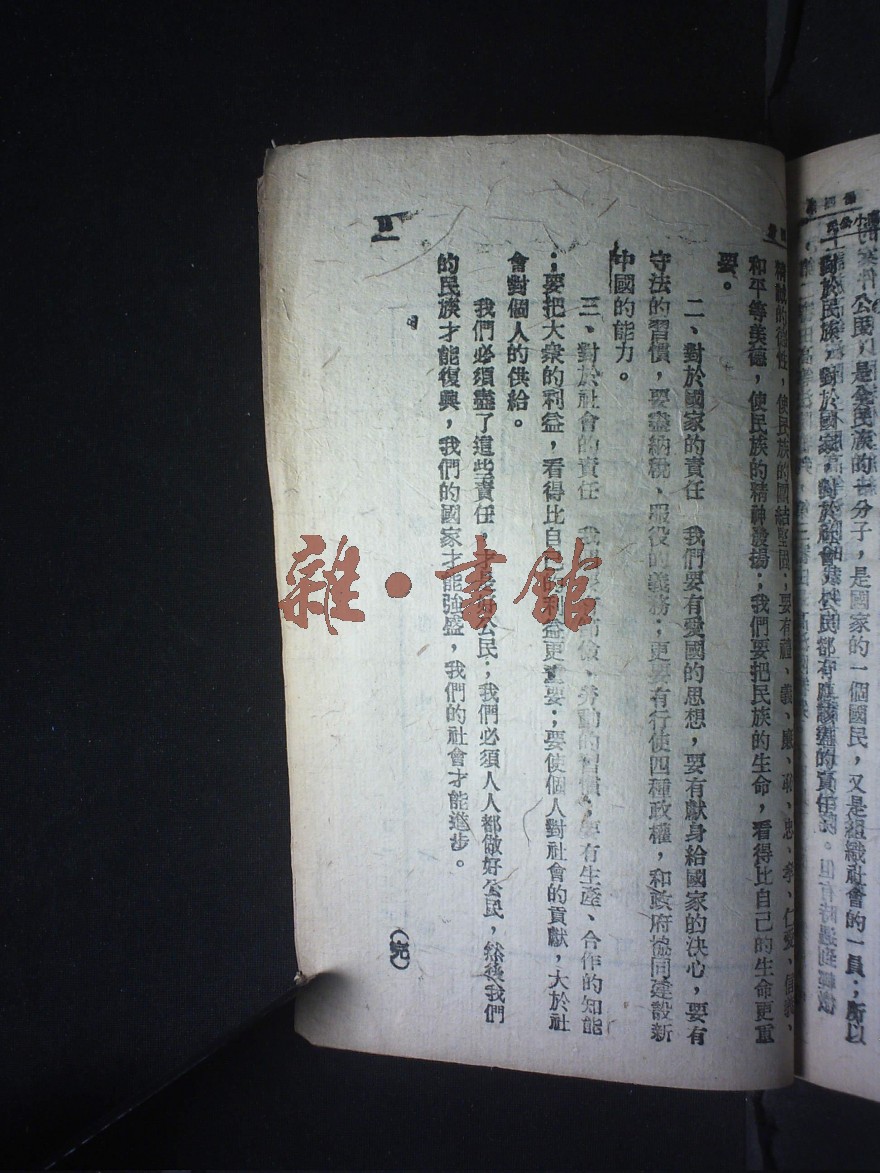 公民，是全民族的一分子，是國家的一個國民，又是組織社會的一員；所以
對於民族，對於國家，對於社會，公民都有應該盡的責任。
精誠的德性，使民族的團結堅固；要有禮、義、廉、恥、忠、孝、仁愛、信義、
和平等美德，使民族的精神發揚；我們要把民族的生命，看得比自己的生命更重
要。
二、對於國家的責任　我們要有愛國的思想，要有獻身給國家的決心，要有
守法的習慣，要盡納稅、服役的義務；更要有行使四種政權，和政府協同建設新
中國的能力。
三、對於社會的責任　我們要有節儉、勞動的習慣，要有生產、合作的知能
；要把大衆的利益，看得比自己的利益更重要；要使個人對社會的貢獻，大於社
會對個人的供給。
我們必須盡了這些責任，才是好公民；我們必須人人都做好公民，然後我們
的民族才能復興，我們的國家才能強盛，我們的社會才能進步。
（完）
雜·書館